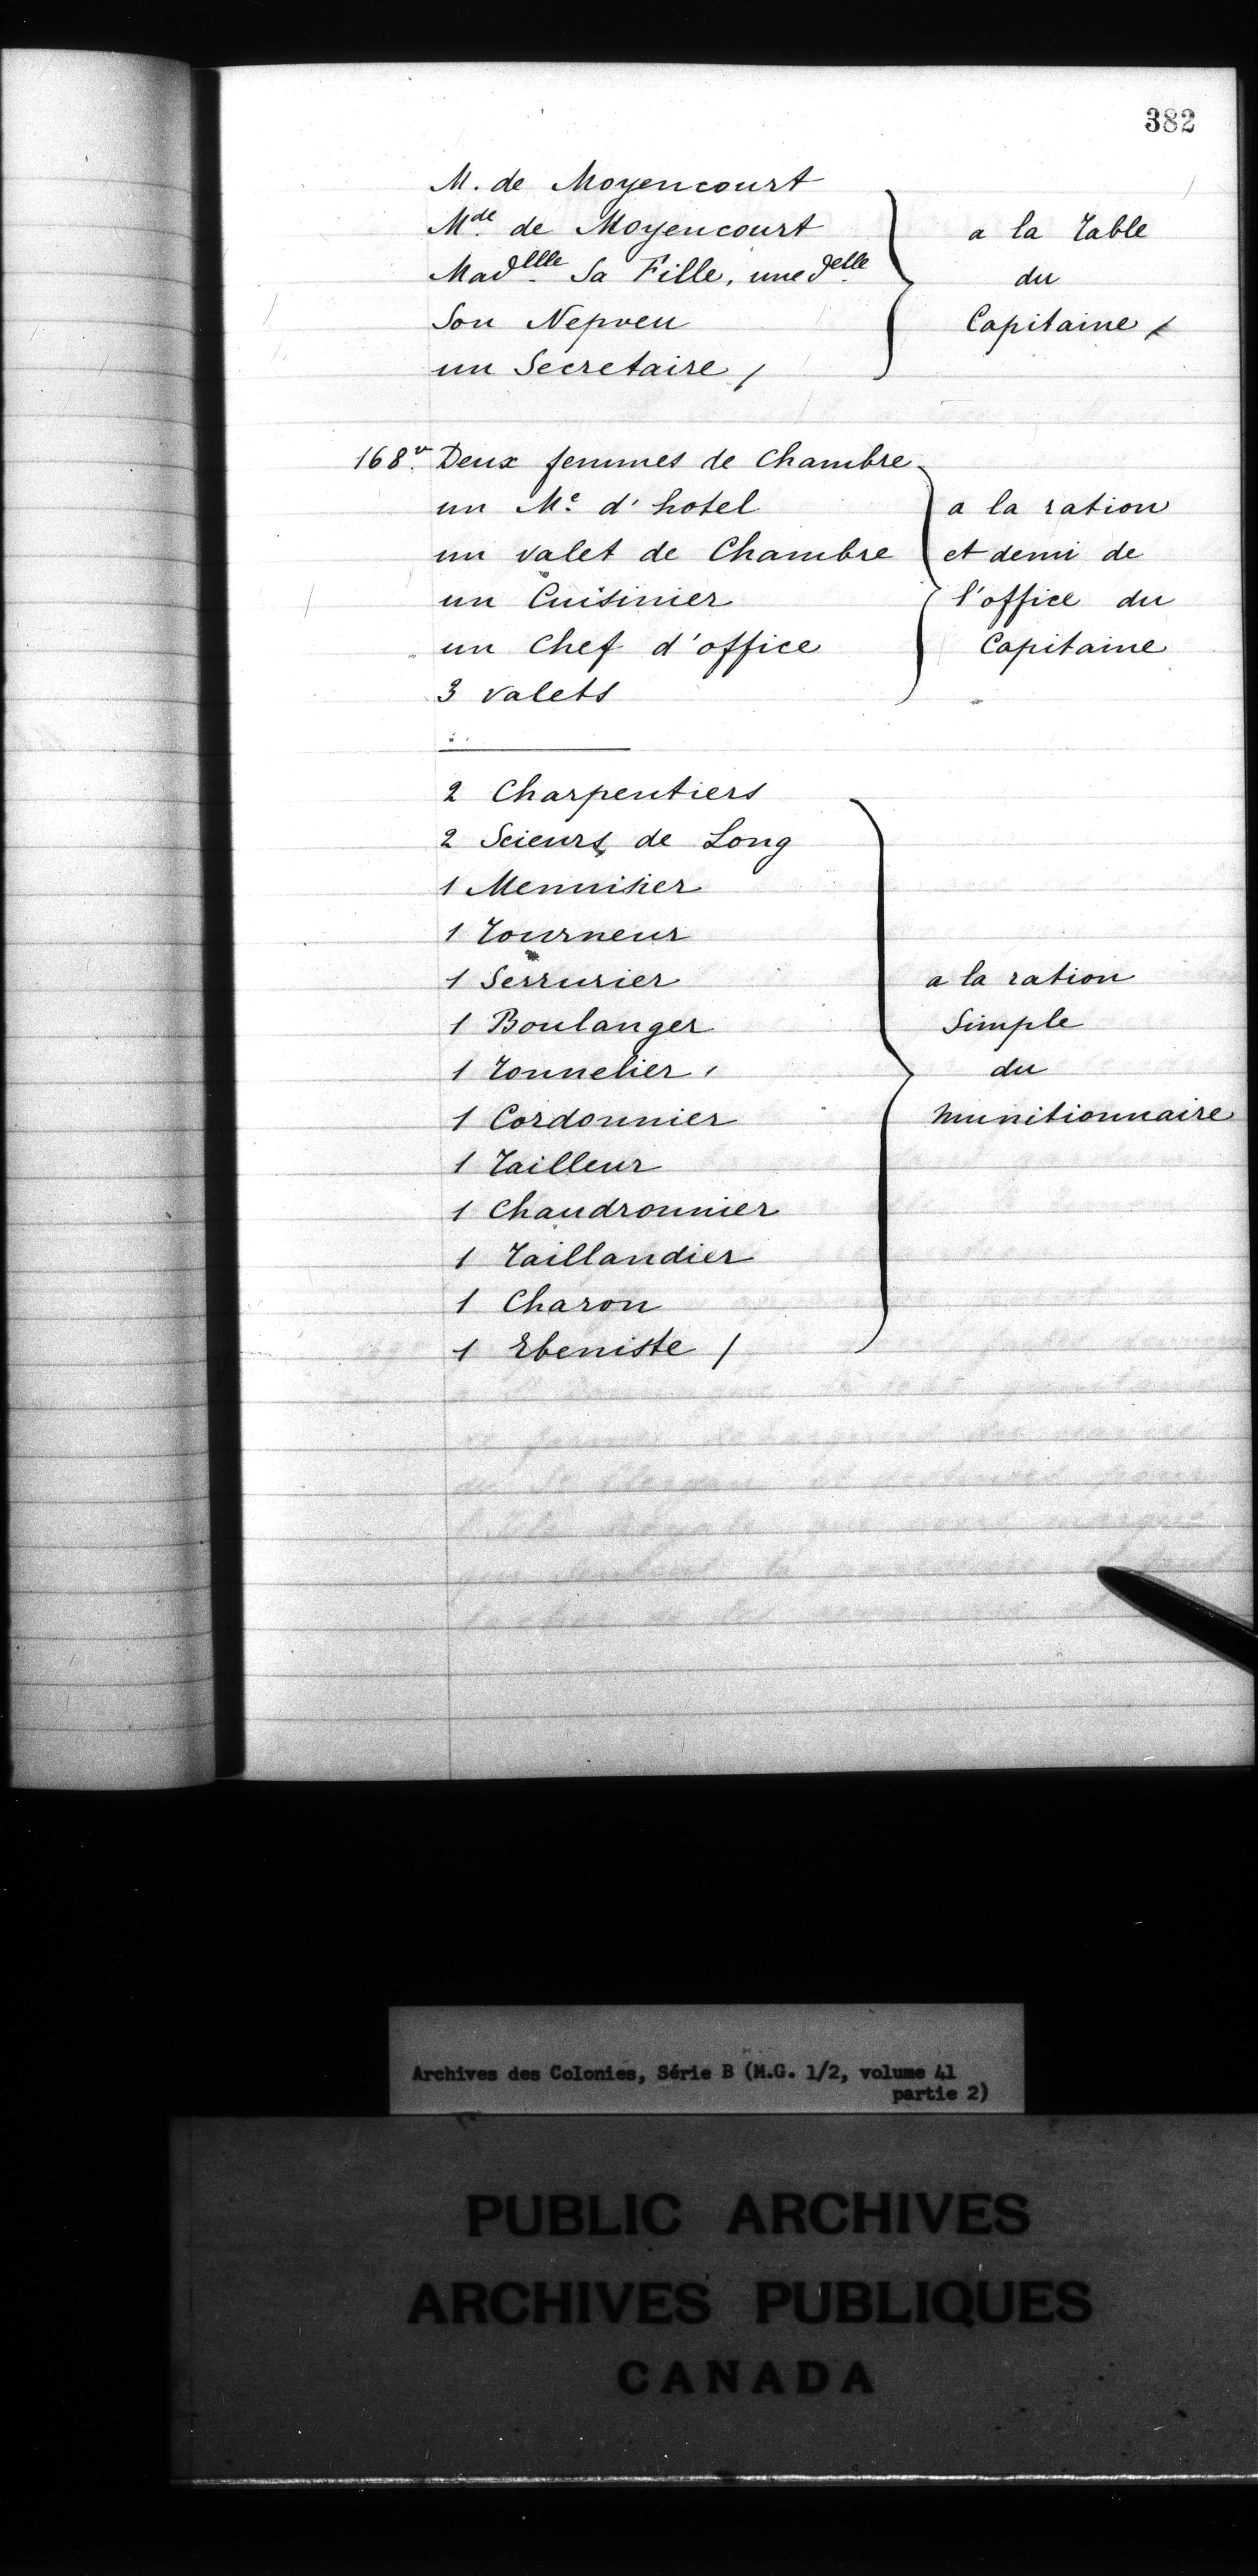 382
M. de Moyencourt
Mde. de Moyencourt
Madlle. Sa Fille, une delle.
Son Nepveu
un Secretaire /
a la Table
du
Capitaine /
168v. Deux femmes de Chambre
un Me. d'hotel
un valet de Chambre
un Cuisinier
un Chef d'office
3 valets
a la ration
et demi de
l'office du
Capitaine
2 Charpentiers
2 Scieurs de Long
1 Menuisier
1 Tourneur
1 Serrurier
1 Boulanger
1 Tonnelier,
1 Cordonnier
1 Tailleur
1 Chaudronnier
1 Taillandier
1 Charon
1 Ebeniste /
a la ration
Simple
du
Munitionnaire
Archives des Colonies, Série B (M.G. 1/2, volume 41
partie 2)
PUBLIC ARCHIVES
ARCHIVES PUBLIQUES
CANADA